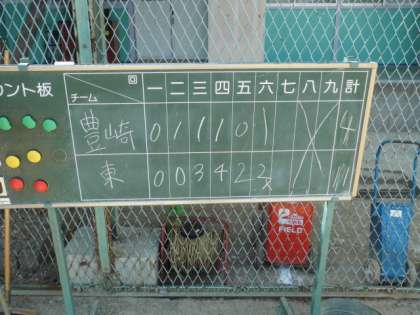 ウント板
回 チーム 一 二 三 四 五 六 七 八 九 計
豊崎 0 1 1 1 0 1 4
東 0 0 3 4 2 2x 11
FIELD